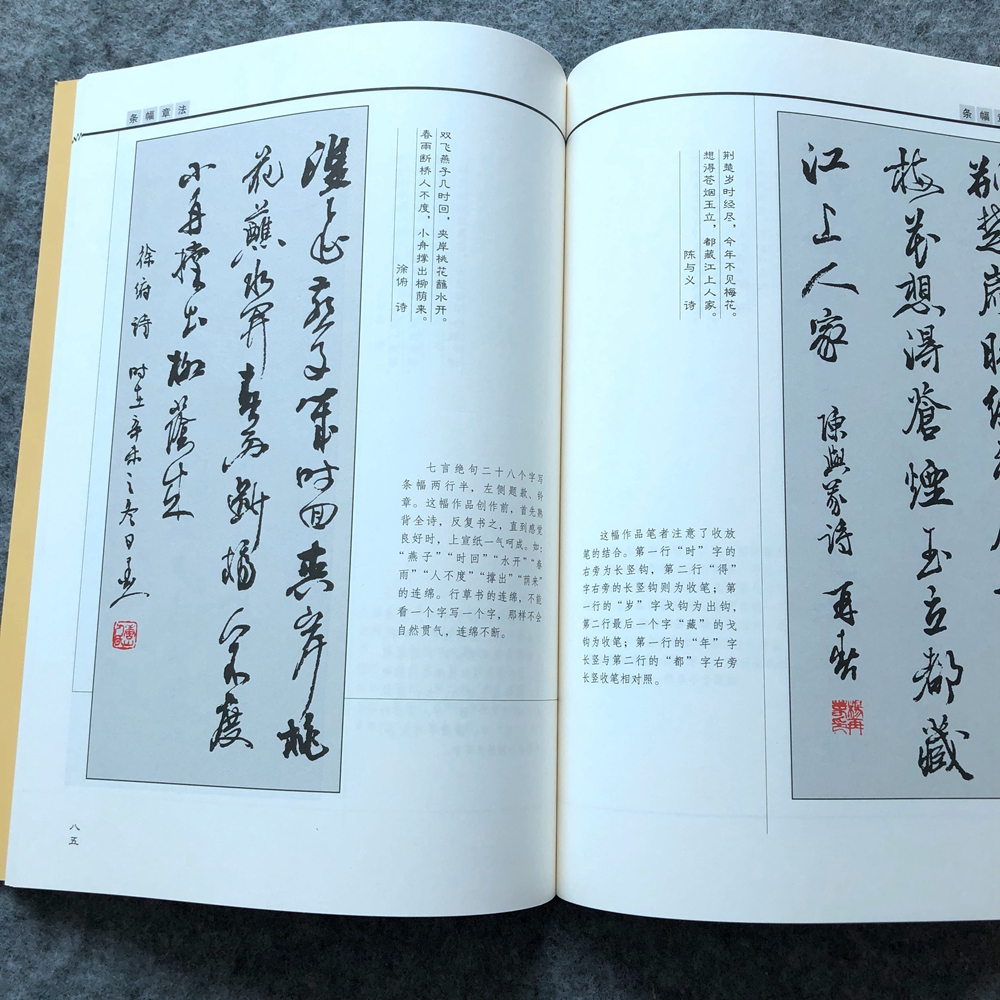 条幅章法
雙飛燕子幾时回夾岸桃
花蘸水開春雨斷橋人不度
小舟撑出柳蔭来
徐俯诗 时在辛未之冬日
双飞燕子几时回，夹岸桃花蘸水开。
春雨断桥人不度，小舟撑出柳荫来。
徐俯 诗
七言绝句二十八个字写
条幅两行半，左侧题款、钤
章。这幅作品创作前，首先熟
背全诗，反复书之，直到感觉
良好时，上宣纸一气呵成。如：
“燕子”“时回”“水开”“春
雨”“人不度”“撑出”“荫来”
的连绵。行草书的连绵，不能
看一个字写一个字，那样不会
自然贯气，连绵不断。
八五
条幅
荆楚歲时
梅花想得蒼煙玉立都藏
江上人家
陳與義诗 再春
荆楚岁时经尽，今年不见梅花。
想得苍烟玉立，都藏江上人家。
陈与义 诗
这幅作品笔者注意了收放
笔的结合。第一行“时”字的
右旁为长竖钩，第二行“得”
字右旁的长竖钩则为收笔；第
一行的“岁”字戈钩为出钩，
第二行最后一个字“藏”的戈
钩为收笔；第一行的“年”字
长竖与第二行的“都”字右旁
长竖收笔相对照。